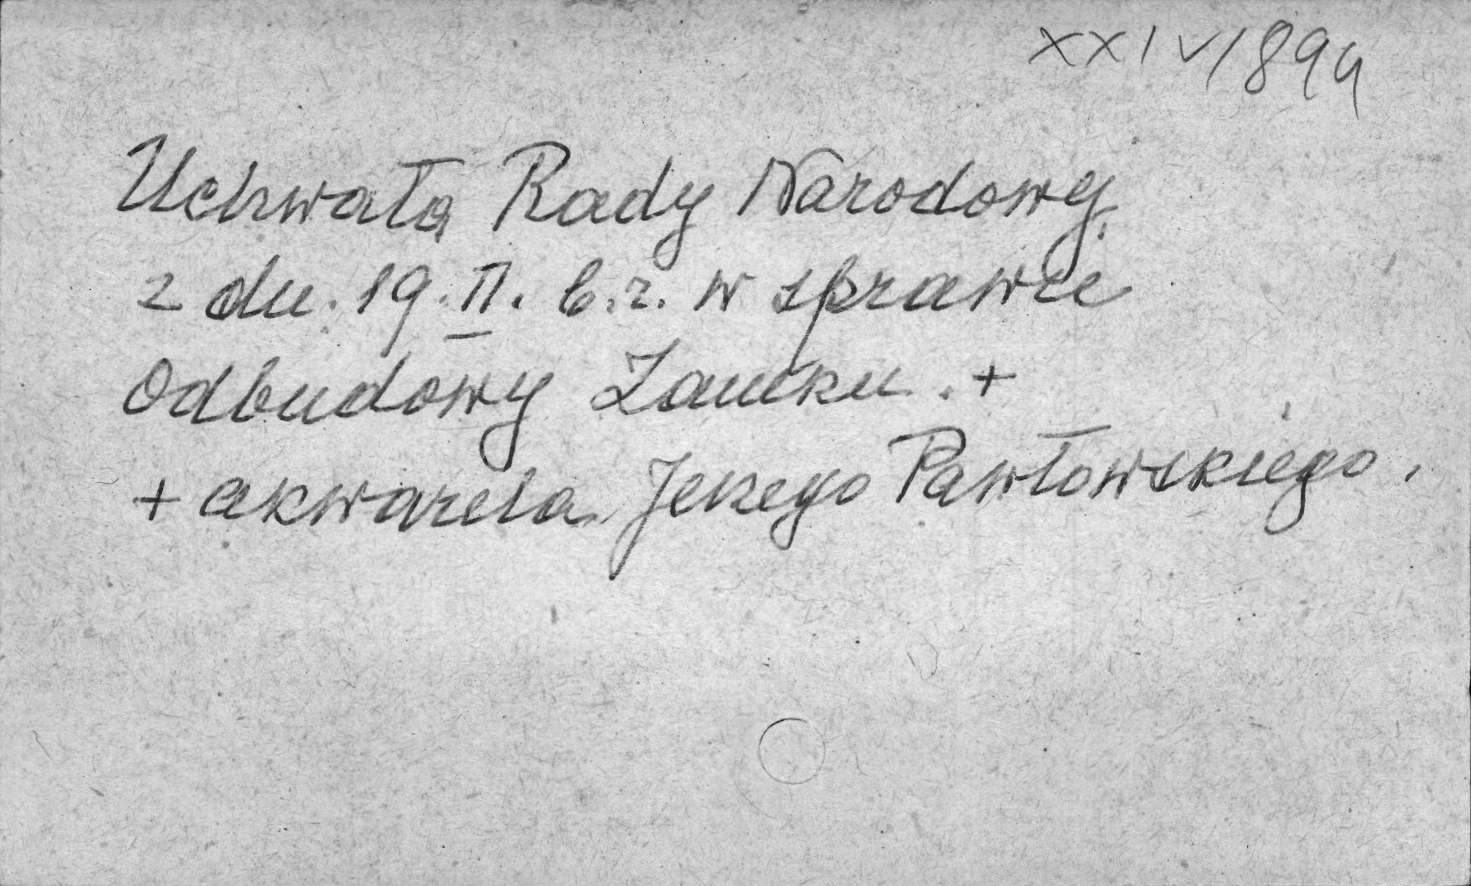 XXIV/894
Uchwała Rady Narodowej
z dn. 19.II. b.r. w sprawie
Odbudowy Zamku. +
+ akwarela Jerzego Pawłowskiego.